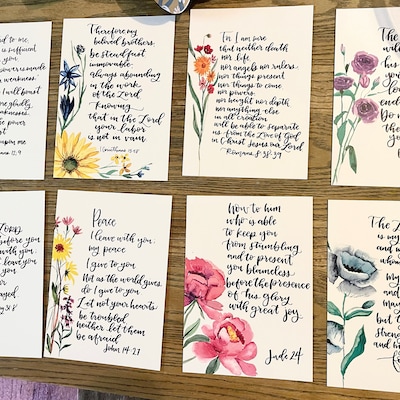 to me
is sufficient
you
power is made
weakness."
I will boast
gladly
weaknesses
the power
rest
upon me
Therefore my
beloved brothers,
be steadfast
immovable,
always abounding
in the work
of the Lord
Knowing
that in the Lord
your labor
is not in vain
1 Corinthians 15:58
For I am sure
that neither death
nor life
nor angels nor rulers
nor things present
nor things to come
nor powers
nor height nor depth
nor anything else
in all creation
will be able to separate
us from the Love of God
in Christ Jesus our Lord
Romans 8:38-39
The
his
you
Do
the
Lord
before you
with you
leave you
you
Peace
I leave with you;
my peace
I give to you
Not as the world gives
do I give to you
Let not your hearts
be troubled
neither let them
be afraid
John 14:27
Now to him
who is able
to keep you
from stumbling
and to present
you blameless
before the presence
of his glory
with great joy
Jude 24
The L
is my
and
whom
my
and
but
stren
and